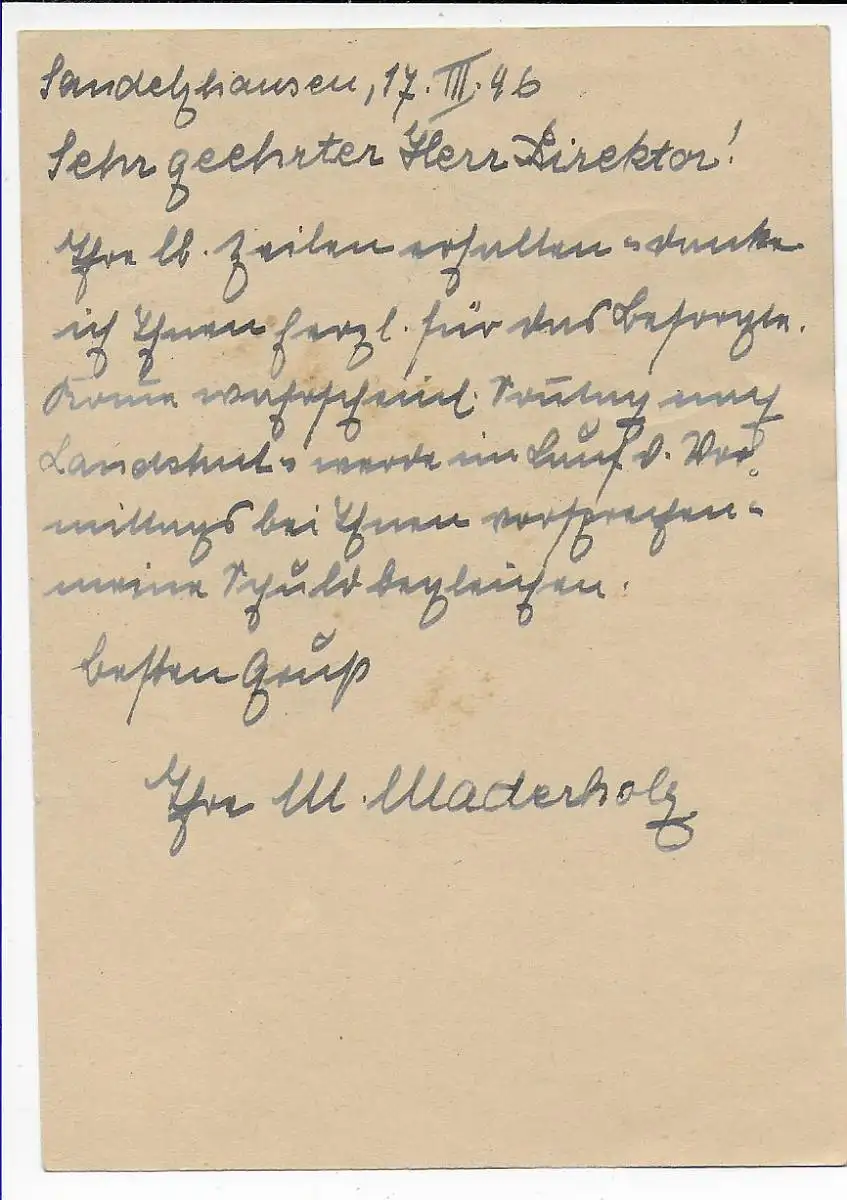 Sandelzhausen, 17. III. 46
Sehr geehrter Herr Direktor!
Ihre lb. Zeilen erhalten u. danke
ich Ihnen herzl. für das Besorgte.
Kom̄e wahrscheinl. Son̄tag nach
Landshut u. werde im Lauf d. Vor=
mittags bei Ihnen vorsprechen u.
meine Schuld begleichen.
Besten Gruß
Ihre M. Maderholz